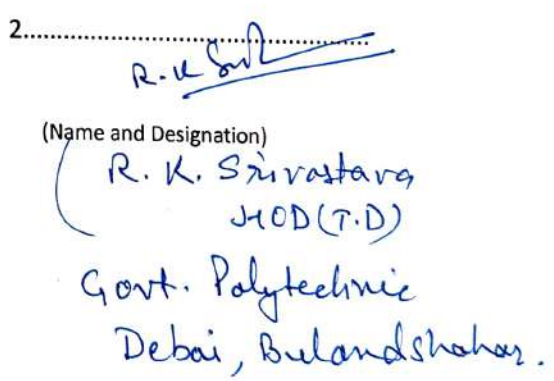 2..............................................................
R.K Sri
(Name and Designation)
R. K. Srivastava
HOD (T.D)
Govt. Polytechnic
Debai, Bulandshahar.